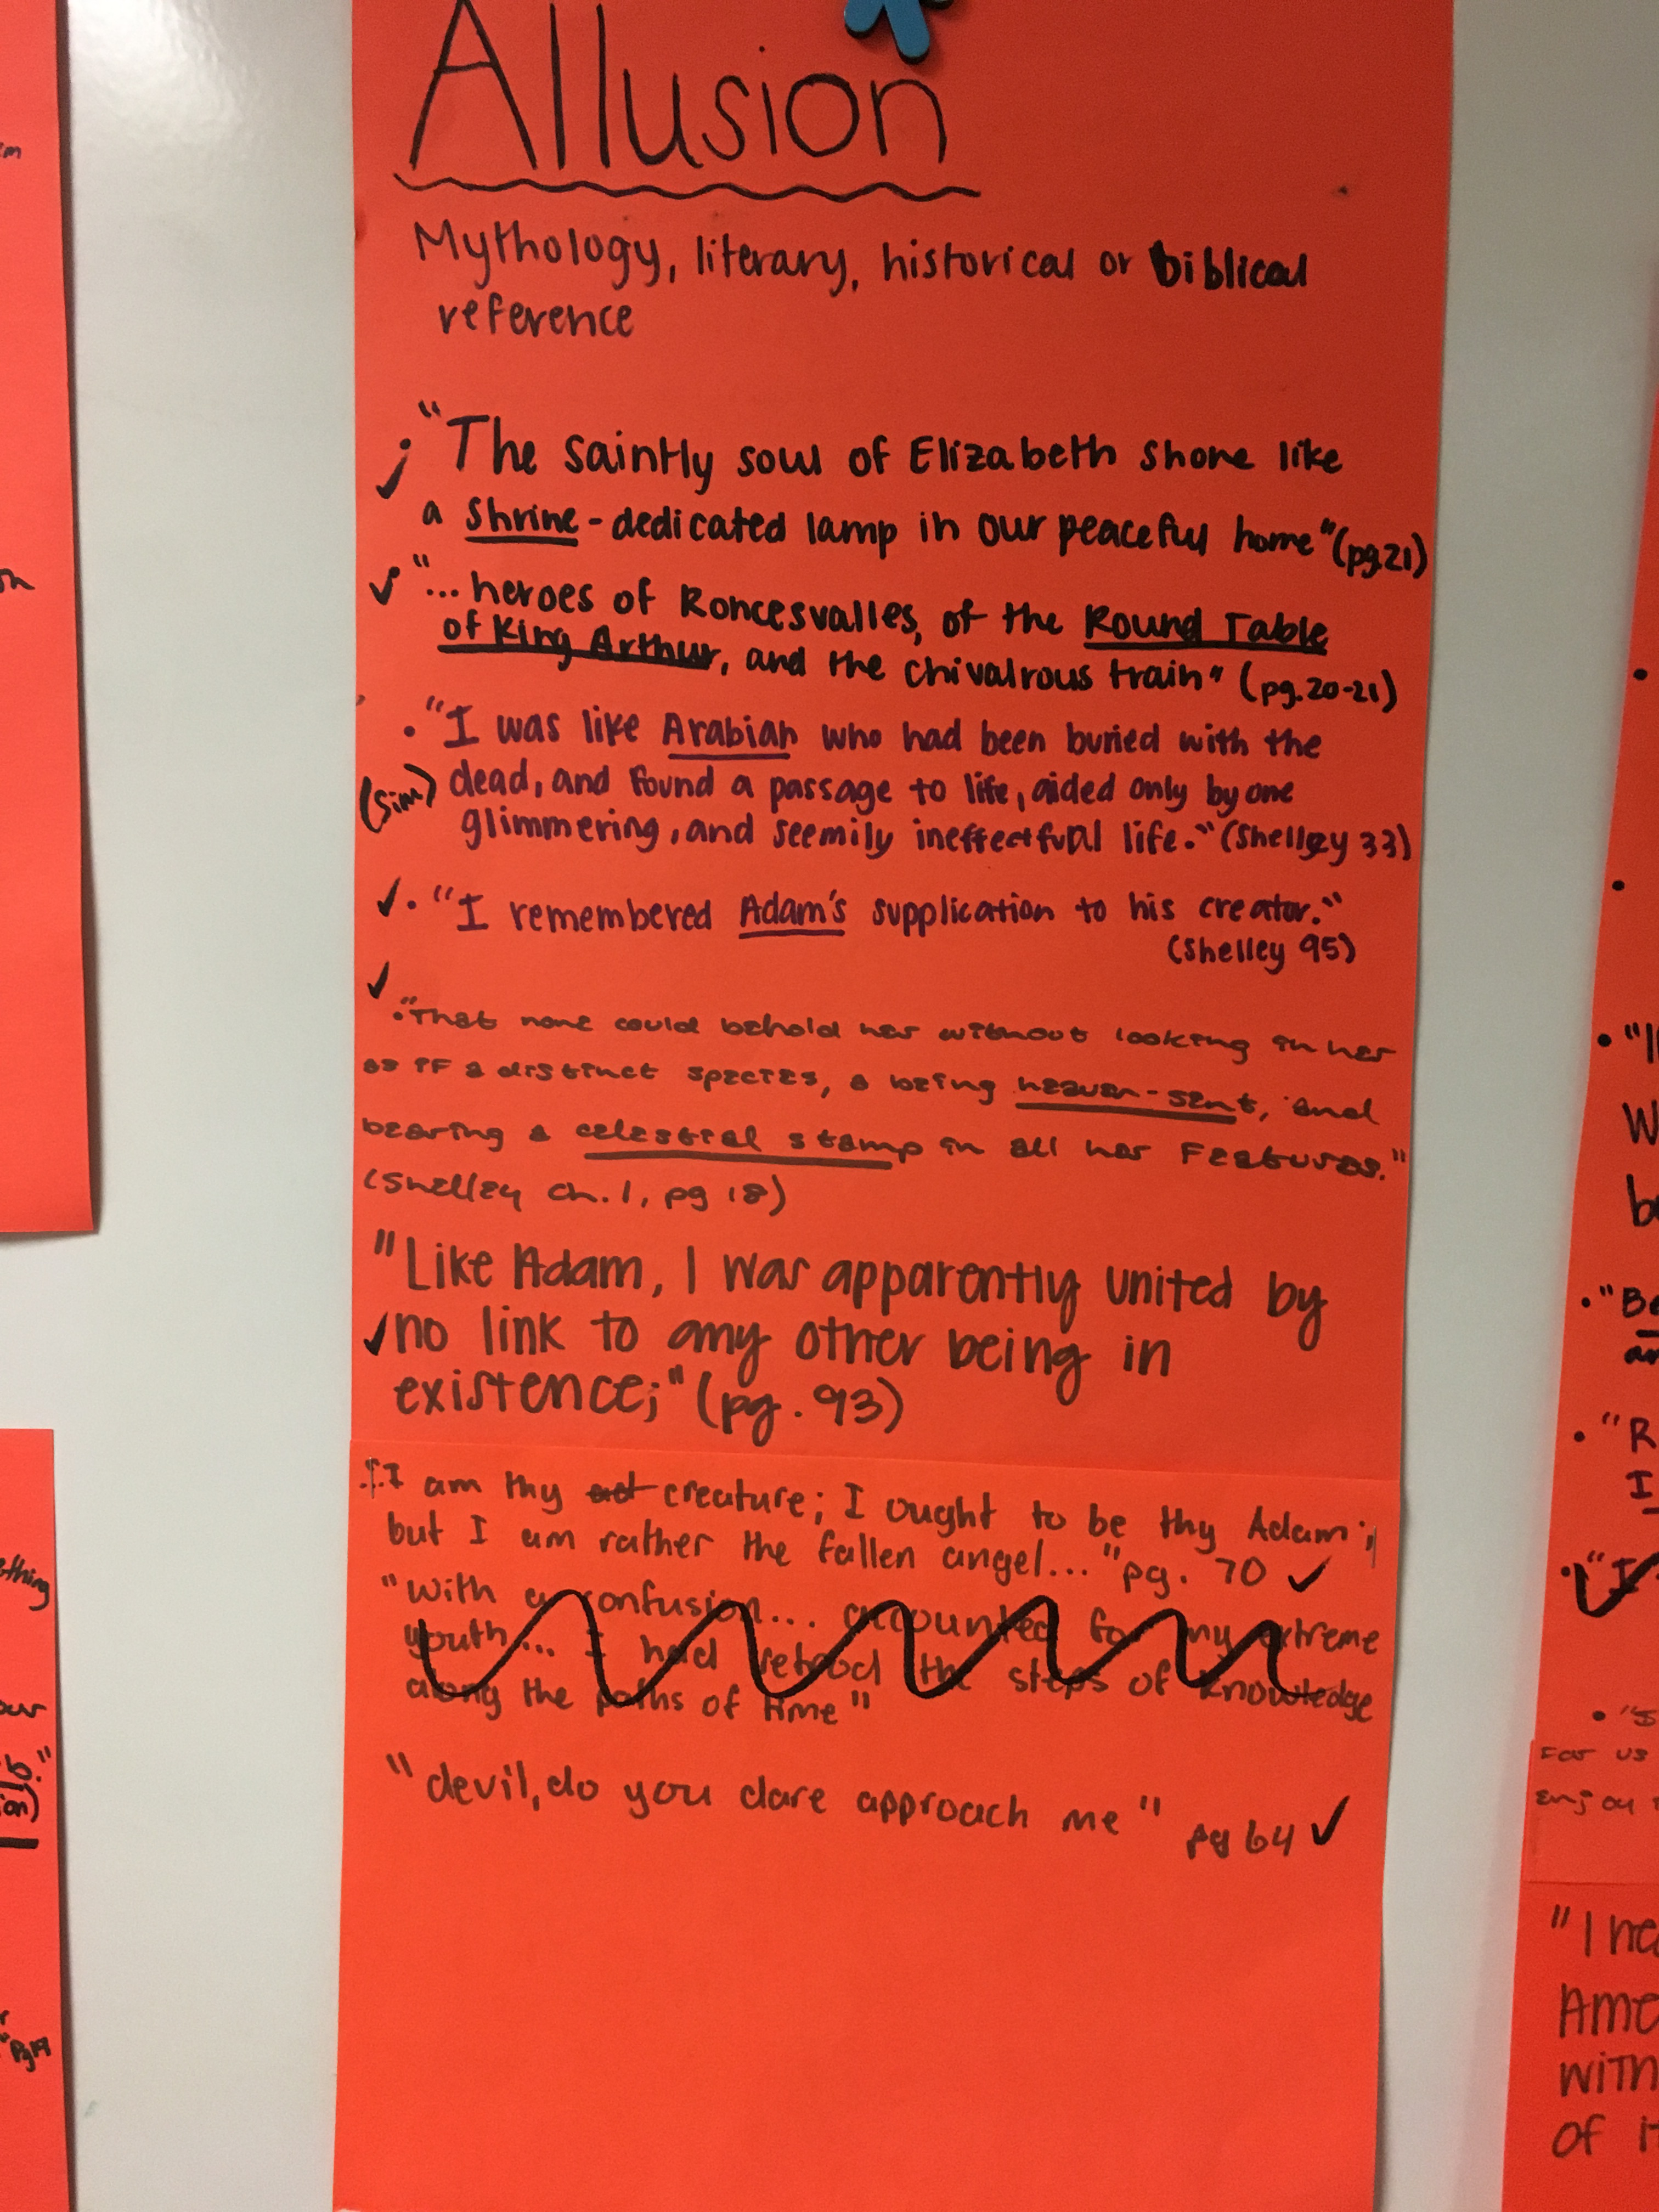 Allusion
Mythology, literary, historical or biblical
reference
"The saintly soul of Elizabeth shone like
a shrine-dedicated lamp in our peaceful home" (pg.21)
"...heroes of Roncesvalles, of the Round Table
of King Arthur, and the chivalrous train" (pg.20-21)
• "I was like Arabian who had been buried with the
(sim) dead, and found a passage to life, aided only by one
glimmering, and seemily ineffectful life." (Shelley 33)
✓• "I remembered Adam's supplication to his creator."
(Shelley 95)
✓
• "That none could behold her without looking in her
as if a distinct species, a being heaven-sent, and
bearing a celestial stamp in all her features."
(Shelley ch. 1, pg 18)
"Like Adam, I was apparently united by
✓ no link to any other being in
existence;" (pg. 93)
"I am thy creature; I ought to be thy Adam;
but I am rather the fallen angel..." pg. 70 ✓
"With a confusion... accounted for my extreme
youth... I had retrod the steps of knowledge
along the paths of time"
"devil, do you dare approach me" pg 64 ✓
em
on
ething
our
b."
ion)
pg 19
• "I
W
b
• "Be
an
• "R
I
• "I
• "S
For us
enjoy
"I he
Ame
with
of it